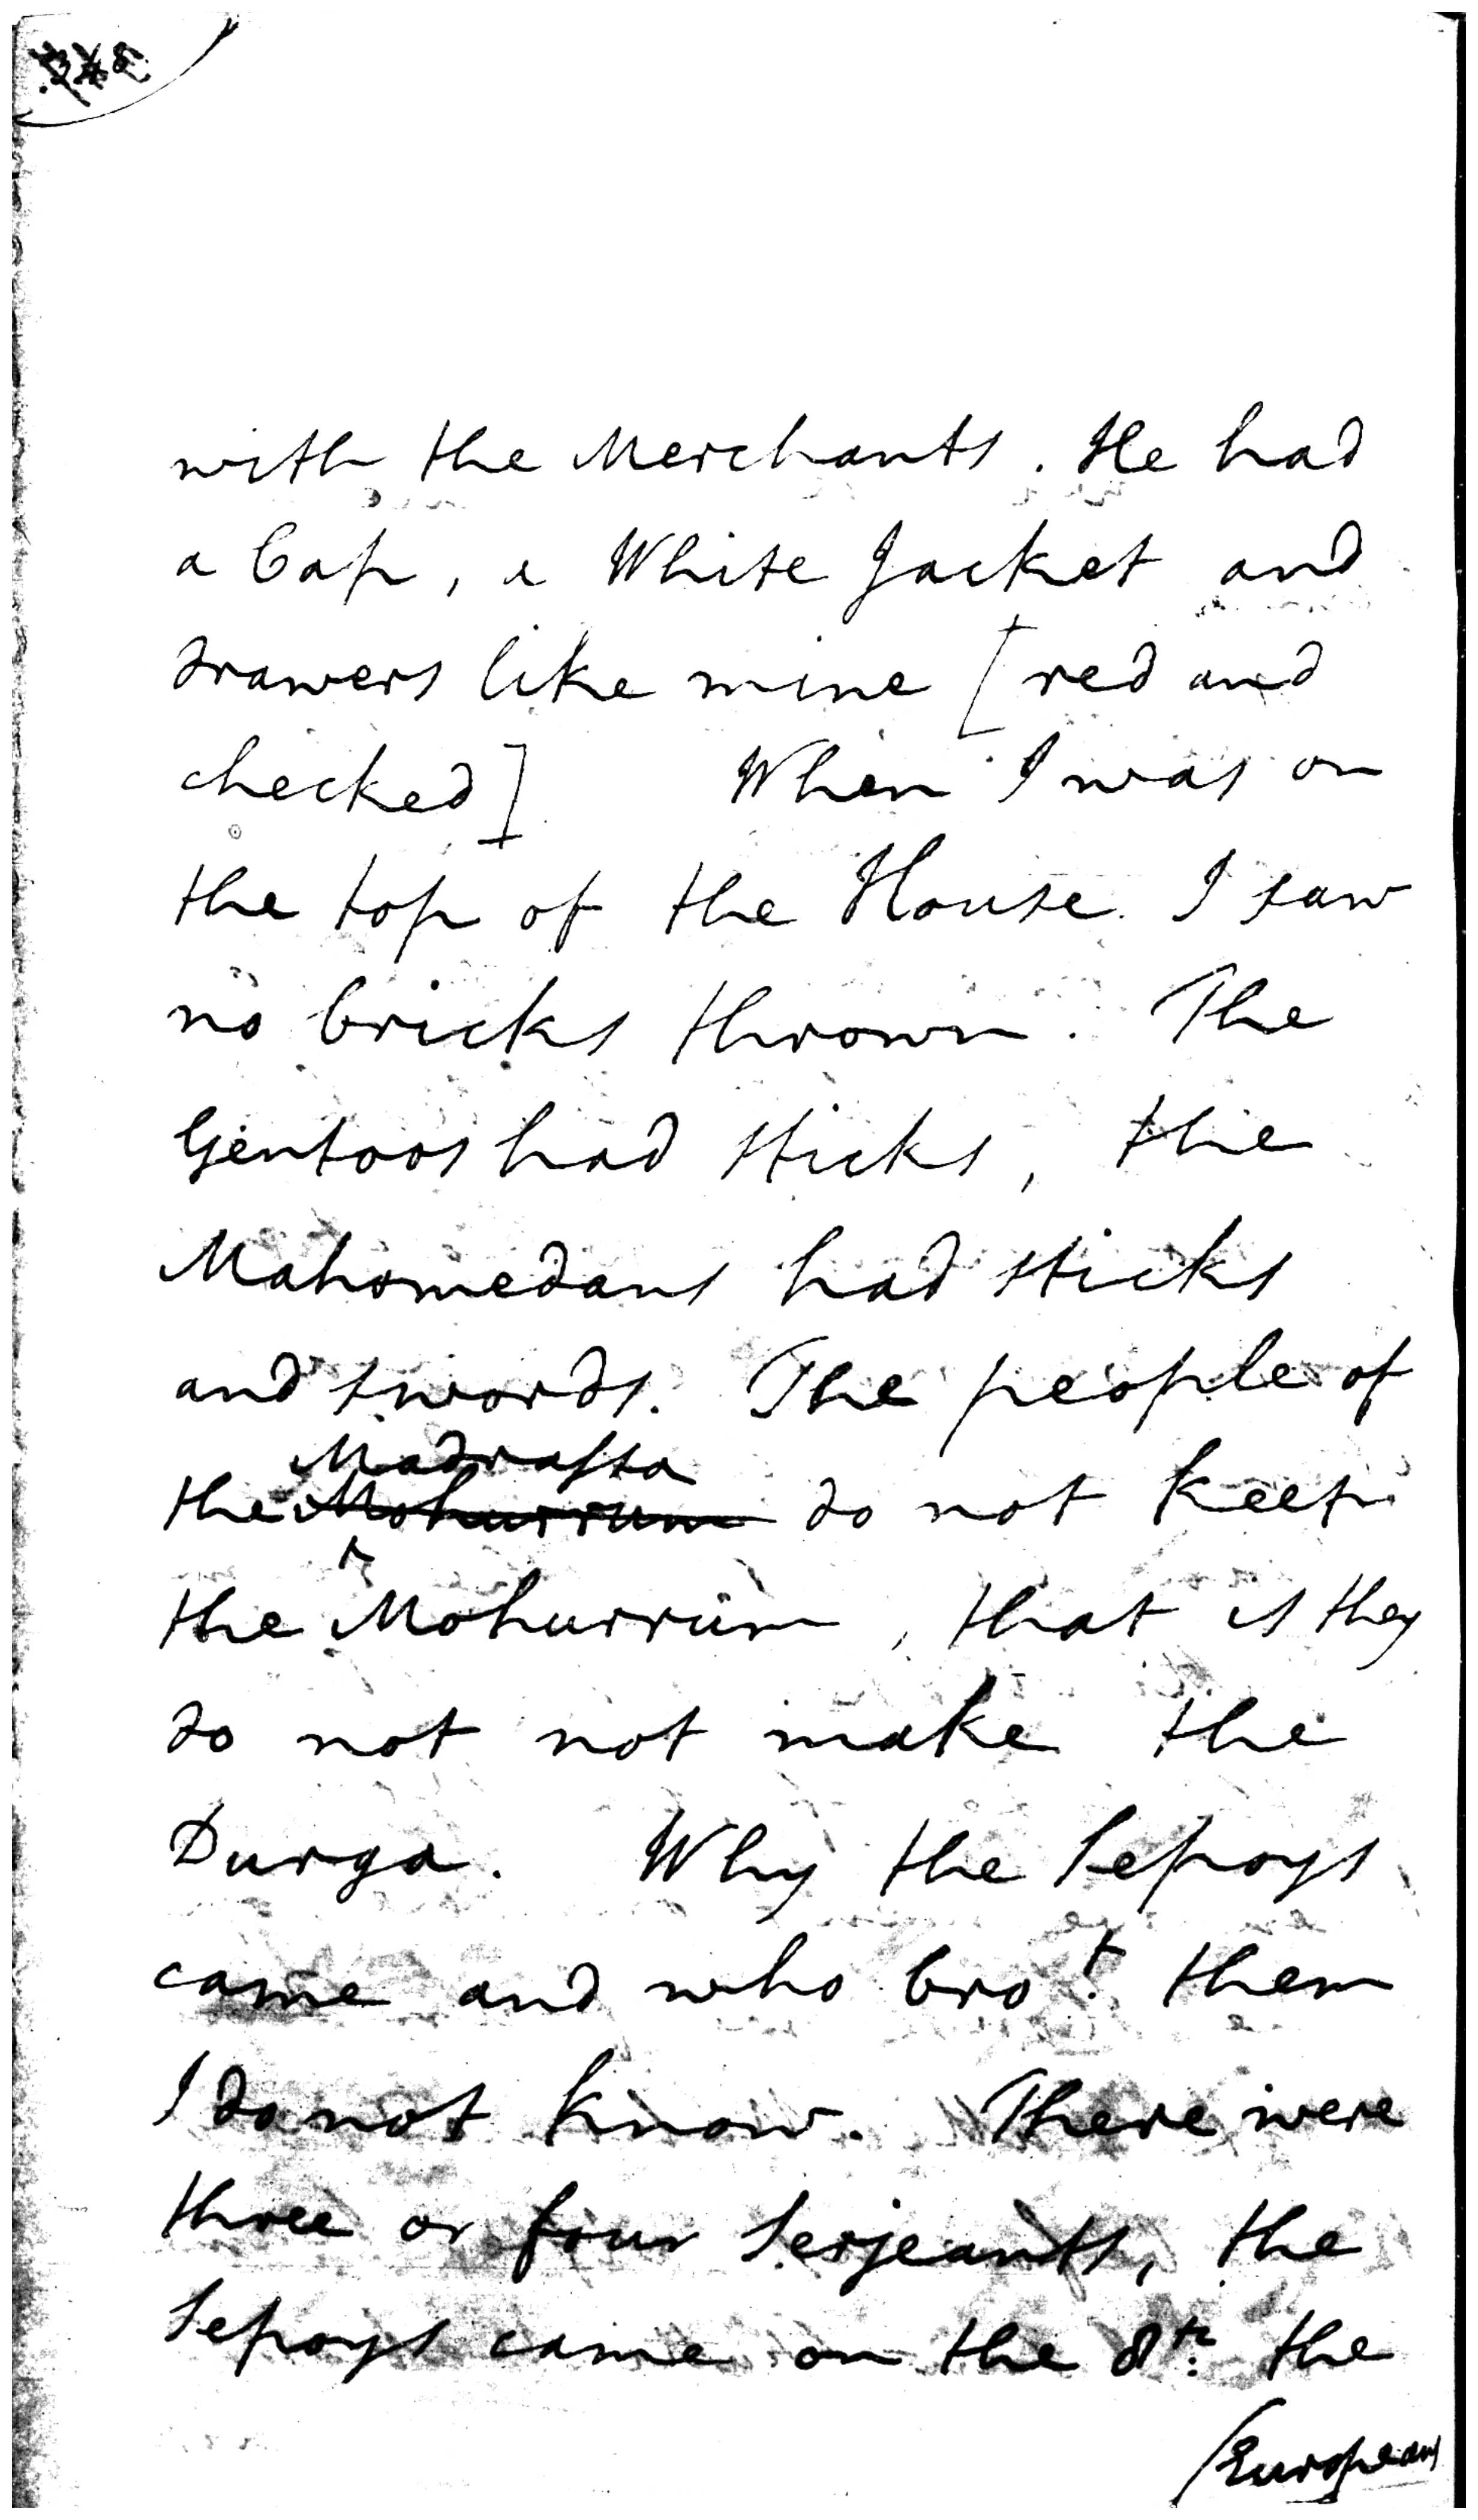 with the Merchants. He had
a Cap, a White Jacket and
drawers like mine [red and
checked] When I was on
the top of the House I saw
no bricks thrown. The
Gentoos had sticks, the
Mahomedans had sticks
and swords. The people of
Madrassa
the Mohurrum do not keep
the Mohurrum, that is they
do not not make the
Durga. Why the Sepoys
came and who bro.t them
I do not know. There were
three or four Serjeants, the
Sepoys came on the 8th. the
/European